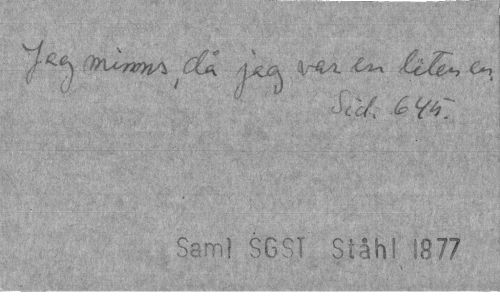 Jag minns, då jag var en liten en.
Sid. 645.
Saml SGST Ståhl 1877